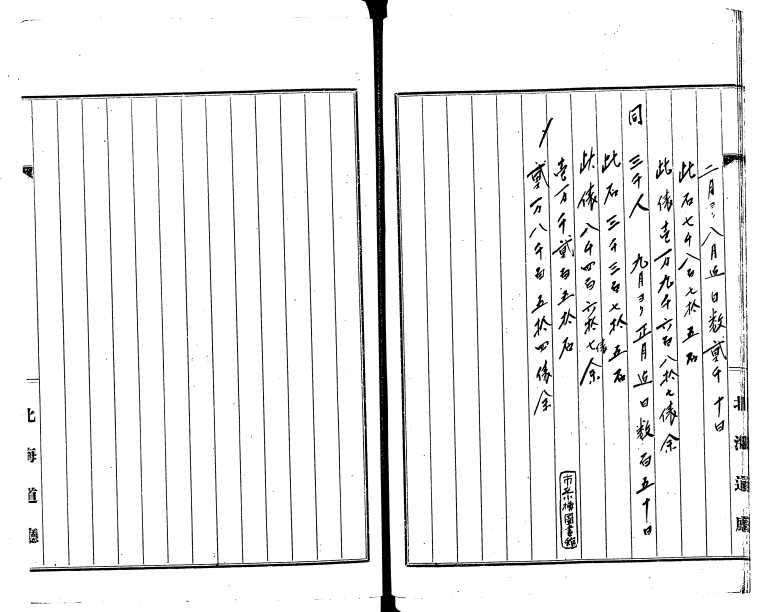 二月ヨリ八月迄日数貳千十日
此石七千八百七拾五石
此俵壱万九千六百八拾七俵余
同 三千人 九月ヨリ正月迄日数百五十日
此石三千三百七拾五石
此俵八千四百六拾七俵余
壱万千貳百五拾石
〆貳万八千百五拾四俵余
北海道廳
北海道廳